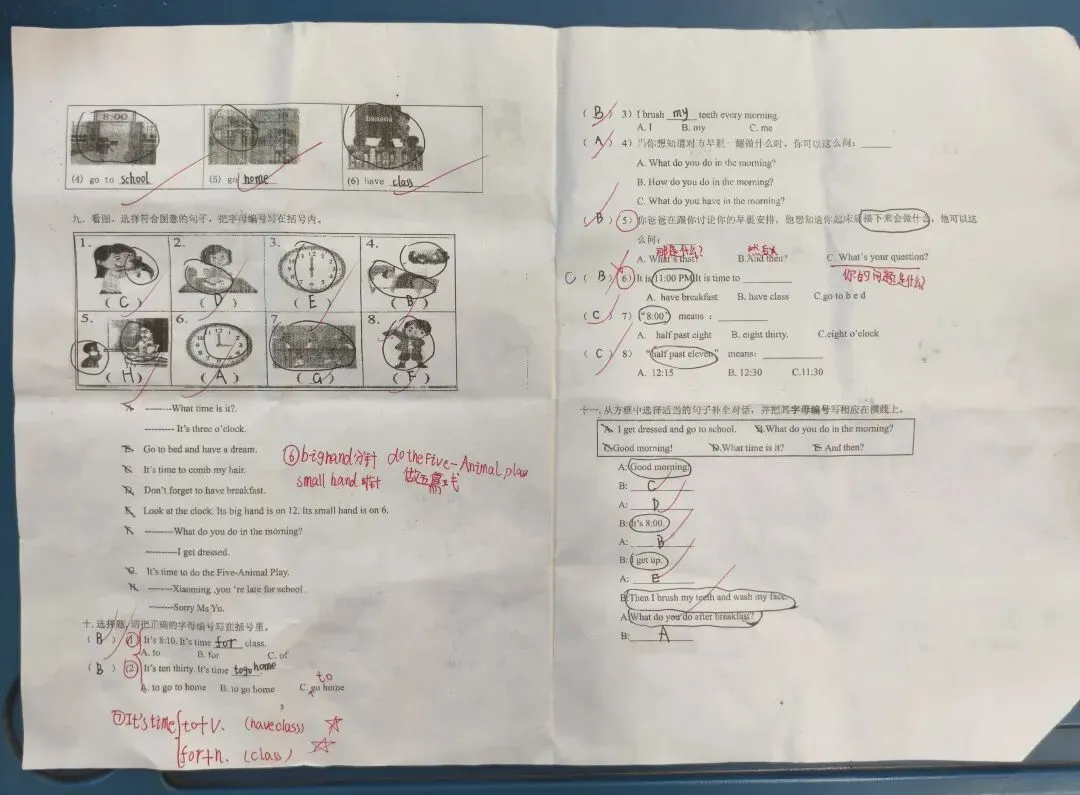 8:00
banana
(4) go to school
(5) go home
(6) have class
九、看图，选择符合图意的句子，把字母编号写在括号内。
1. 2. 3. 4.
( C ) ( D ) ( E ) ( B )
5. 6. 7. 8.
( H ) ( A ) ( G ) ( F )
A. --------What time is it?.
--------- It's three o'clock.
B. Go to bed and have a dream.
C. It's time to comb my hair.
D. Don't forget to have breakfast.
E. Look at the clock. Its big hand is on 12. Its small hand is on 6.
F. ---------What do you do in the morning?
----------I get dressed.
G. It's time to do the Five-Animal Play.
H. --------Xiaoming ,you 're late for school .
--------Sorry Ms Yu.
⑥bighand分针 do the Five-Animal play
small hand 时针 做五禽戏
十、选择题,请把正确的字母编号写在括号里。
( B ) (1) It's 8:10. It's time for class.
A. to B. for C. of
( B ) (2) It's ten thirty. It's time to go home
A. to go to home B. to go home C. go home
to
3
①It's time to+V. (have class) ☆
for+n. (class) ☆
( B ) 3) I brush my teeth every morning.
A. I B. my C. me
( A ) 4) 当你想知道对方早晨一般做什么时，你可以这么问：_____
A. What do you do in the morning?
B. How do you do in the morning?
C. What do you have in the morning?
( B ) 5) 你爸爸在跟你讨论你的早晨安排，他想知道你起床后接下来会做什么，他可以这
么问:
那是什么? 然后呢
A. What's that? B.And then? C. What's your question?
你的问题是什么?
C ( B ) 6) It is 11:00 PM.It is time to ________
A. have breakfast B. have class C.go to b e d
( C ) 7) "8:00" means : _________
A. half past eight B. eight thirty. C.eight o'clock
( C ) 8) "half past eleven" means: __________
A. 12:15 B. 12:30 C.11:30
十一、从方框中选择适当的句子补全对话，并把其字母编号写相应在横线上。
A. I get dressed and go to school. B.What do you do in the morning?
C.Good morning! D.What time is it? E. And then?
A: Good morning!
B: C
A: D
B: It's 8:00.
A: B
B: I get up.
A: E
B:Then I brush my teeth and wash my face.
A:What do you do after breakfast?
B: A
4